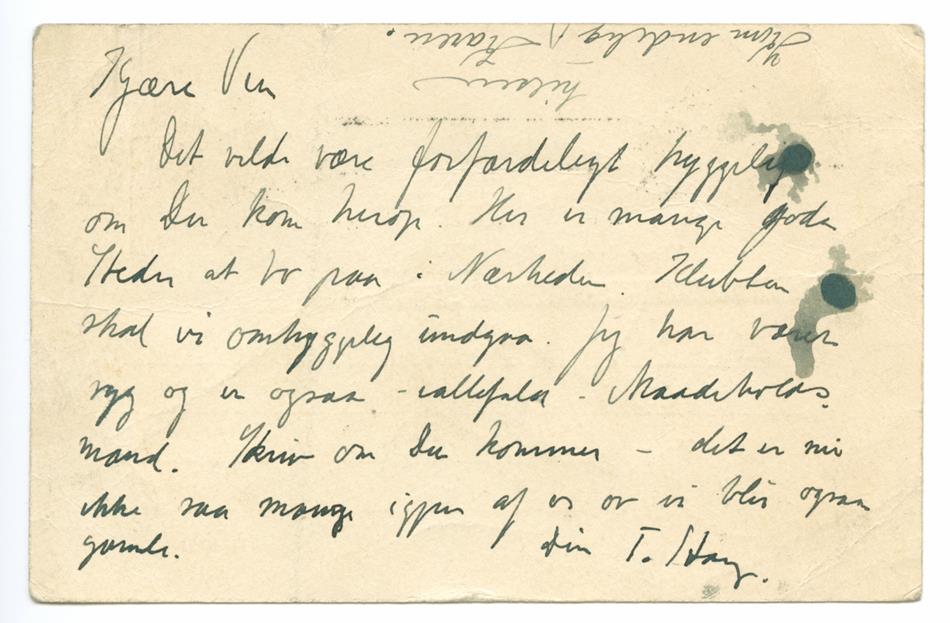 Kjære Ven
Det vilde være forfærdeligt hyggelig
om Du kom herop. Her er mange gode
Steder at bo paa i Nærheden. Klubben
skal vi omhyggelig undgaa. Jeg har været
syg og er ogsaa - iallefald - Maadeholds
mand. Skriv om Du kommer - det er nu
ikke saa mange igjen af os og vi blir ogsaa
gamle.
Din T.
hilsen
Kom endelig Karen.